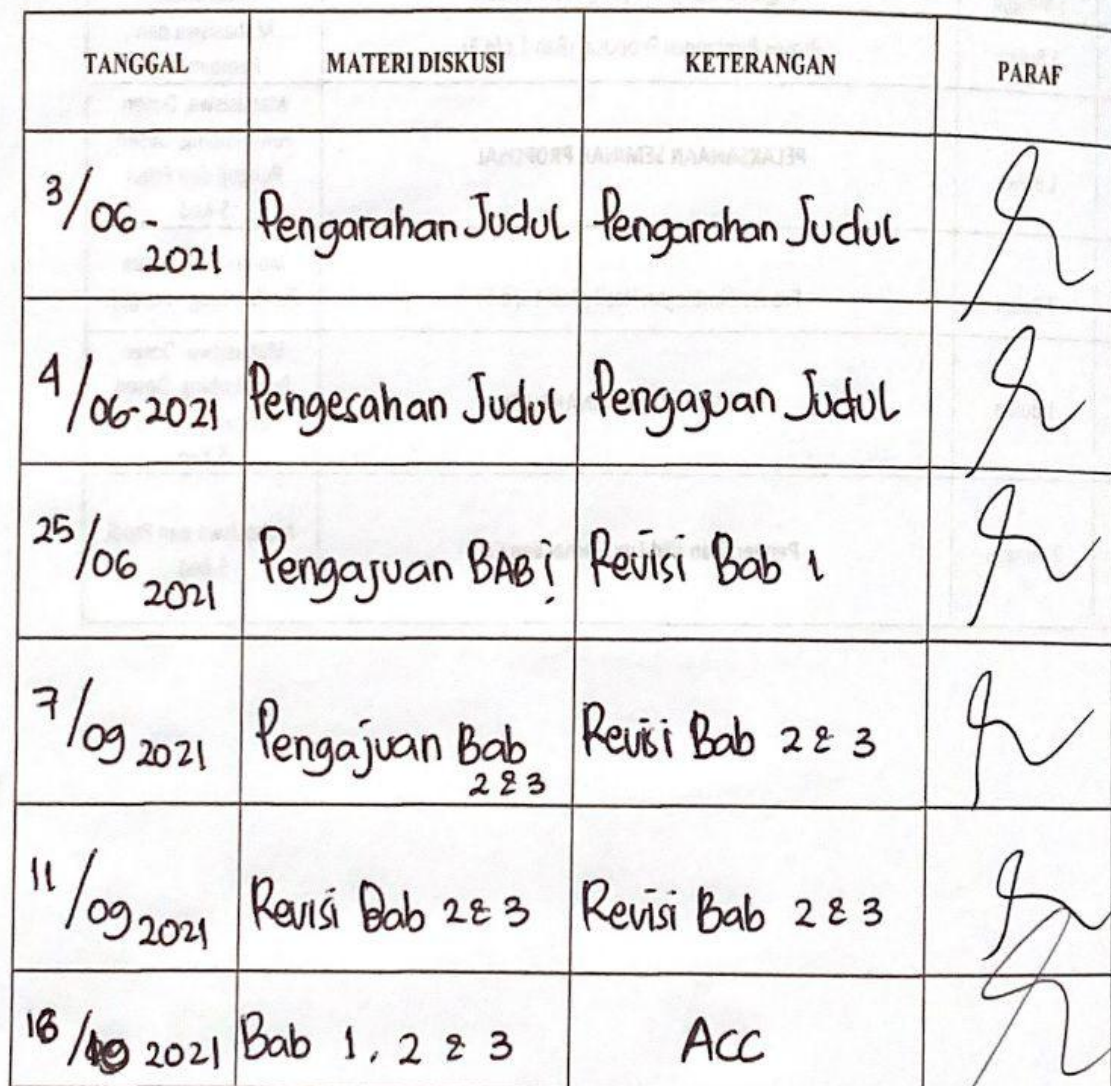 TANGGAL MATERI DISKUSI KETERANGAN PARAF
3/06-2021 Pengarahan Judul Pengarahan Judul
4/06-2021 Pengesahan Judul Pengajuan Judul
25/06 2021 Pengajuan BAB i Revisi Bab 1
7/09 2021 Pengajuan Bab 2 & 3 Revisi Bab 2 & 3
11/09 2021 Revisi Bab 2 & 3 Revisi Bab 2 & 3
2021 Bab 1, 2 & 3 ACC